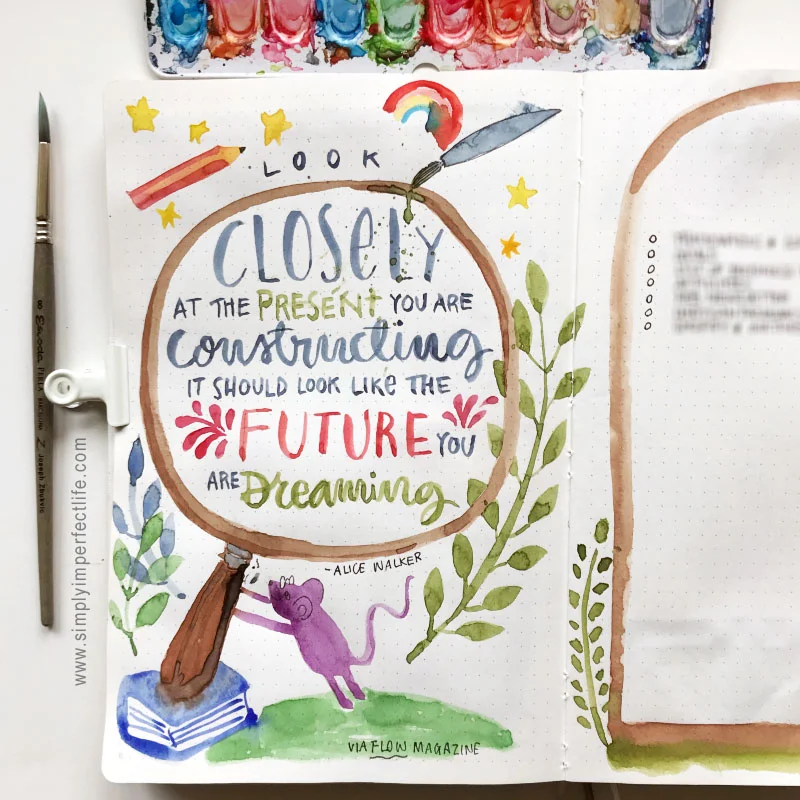 LOOK
CLOSELY
AT THE PRESENT YOU ARE
constructing
IT SHOULD LOOK LIKE THE
FUTURE YOU
ARE Dreaming
-ALICE WALKER
VIA FLOW MAGAZINE
www.simplyimperfectlife.com